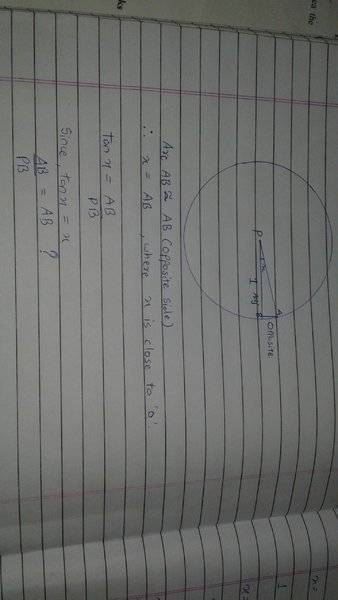 P
x
1
A
B
opposite
Arc AB ≈ AB (opposite side)
∴ x = AB , where x is close to '0'.
tan x = AB
PB
Since, tan x = x
AB = AB ?
PB
x =
1